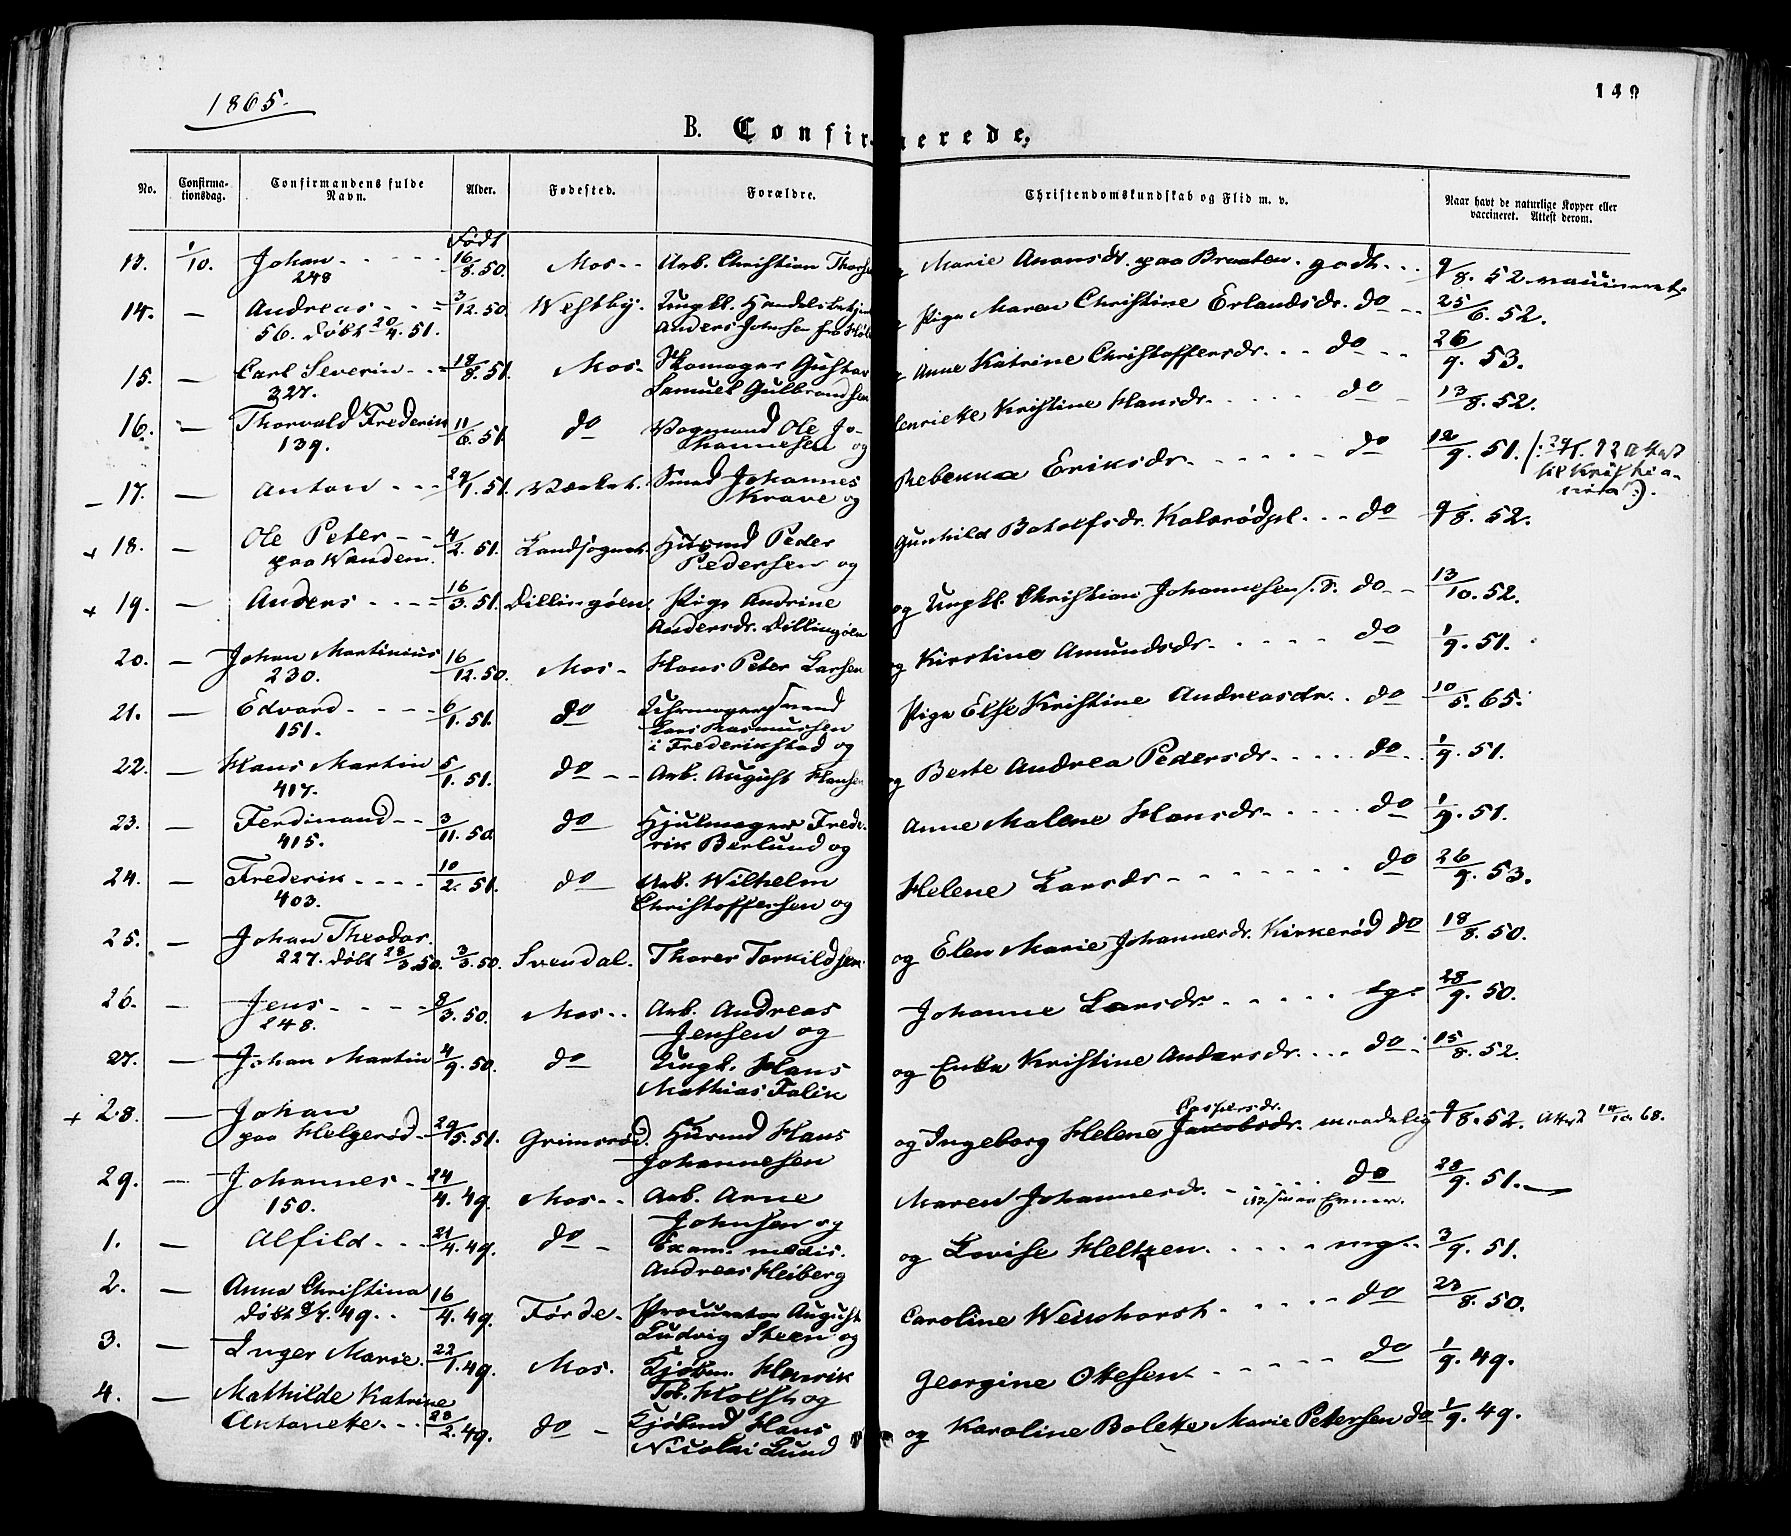 1865.
149
B. Confirmerede,
No. Confirma-tionsdag. Confirmandens fulde Navn. Alder. Fødested. Forældre. Christendomskundskab og Flid m. v. Naar havt de naturlige Kopper eller vaccineret. Attest derom.
Født
13. 1/10. Johan - - - - 16/8.50. Mos - - Arb. Christian Thorsen og Marie Anansdr. paa Braaten. godt - - 9/8. 52. vaccineret.
248
14. — Andreas - - - 3/12.50. Westby. Ungkl. Handelsbetjen Pige Maren Christine Erlandsdr. do - - 25/6. 52.
56. døbt 20/4. 51. Anders Johnsen fra Høl
15. — Carl Severin - - 18/8.51. Mos. Skomager Gustav og Anne Katrine Christoffersdr. - - do - - 26/9. 53.
327. Samuel Gulbrandsen
16. — Thorvald Frederik 11/6.51 do Vognmand Ole Jo- Henriette Kristine Hansdr. - - - do - 13/8. 52.
139. hannesen og
17. — Anton - - - 29/1.51. Værket. Smed Johannes Rebekka Eriksdr. - - - - do 12/9. 51. Attest til Kristiania
Krave og
+ 18. — Ole Peter - - 4/2. 51. Landsognet. Husmd Peder Gunhild Botolfsdr. Kalsrødpl. - - do 9/8. 52.
paa Wandem. Pedersen og
+ 19. — Anders - - - - 16/3.51. Dillingøen. Pige Andrine og Ungkl. Christian Johannesen S. do - - 13/10. 52.
Andersdr. Dillingøen
20. — Johan Martinius 16/12.50. Mos - Hans Peter Larsen og Kirstine Amundsdr. - - - - do 1/9. 51.
230.
21. — Edvard - - - - 6/1.51. do Uhrmagersvend Pige Else Kristine Andreasdr. - do 10/5. 65.
151. Lars Rasmussen
i Frederikstad og
22. — Hans Martin 5/1.51. do - - Arb. August Hansen og Berte Andrea Pedersdr. - - - - do - - 1/9. 51.
417.
23. — Ferdinand - - 3/11.50. do Hjulmager Frede- Anne Malene Hansdr. - - - - do 1/9. 51.
415. rik Berlund og
24. — Frederik - - - - 10/2.51. do Arb. Wilhelm Helene Larsdr - - - - - - - do 26/9. 53.
403. Christoffersen og
25. — Johan Theodor. 3/3.50. Svendal. Thorer Torkildsen og Elen Marie Johannesdr. Kirkerød do 18/8. 50.
227. døbt 28/3.50.
26. — Jens - - - - 8/3.50. Mos - - Arb. Andreas Johanne Larsdr. - - - - tg. 28/9. 50.
248. Jensen og
27. — Johan Martin 4/9.50. do Ungk. Hans og Enke Kristine Andersdr. - - - do - 15/8. 52.
Mathias Falck
+ 28. — Johan 29/5.51. Grimsrød. Husmd Hans og Ingeborg Helene Jakobsdr. Caspersdr. maadelig 9/8. 52. Attest 14/10. 68.
paa Helgerød - Johannesen
29. — Johannes - 24/4.49. Mos - - Arb. Arne Maren Johannesdr. - - - do 28/9. 51. —
150. Johnsen og
1. — Alfild - - - 21/4.49. do - Exam. medic. og Lovise Heltzen. - - - - mg. - 3/9. 51.
Andreas Heiberg
2. — Anna Christina 16/4.49. Førde. Procurator August Caroline Weinhorst. - - - - do 23/8. 50.
døbt 8/7. 49. - - Ludvig Steen og
3. — Inger Marie. 22/1.49. Mos. Kjøbm. Henrik Georgine Ottesen - - - - - do 1/9. 49.
Tob. Holst og
4. — Mathilde Katrine
Antonette. - - 28/2.49. do - Kjøbmd Hans og Karoline Bolette Marie Petersen do 1/9. 49.
Nicolai Lund